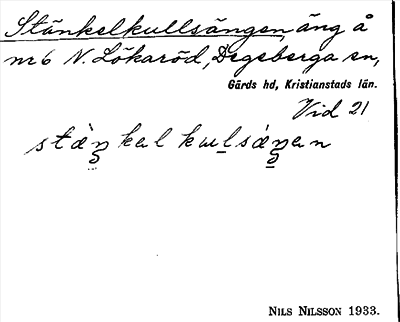 Stänkelkullsängen äng å
nr 6 N. Lökaröd, Degeberga sn,
Gärds hd, Kristianstads län.
Vid 21
NILS NILSSON 1933.